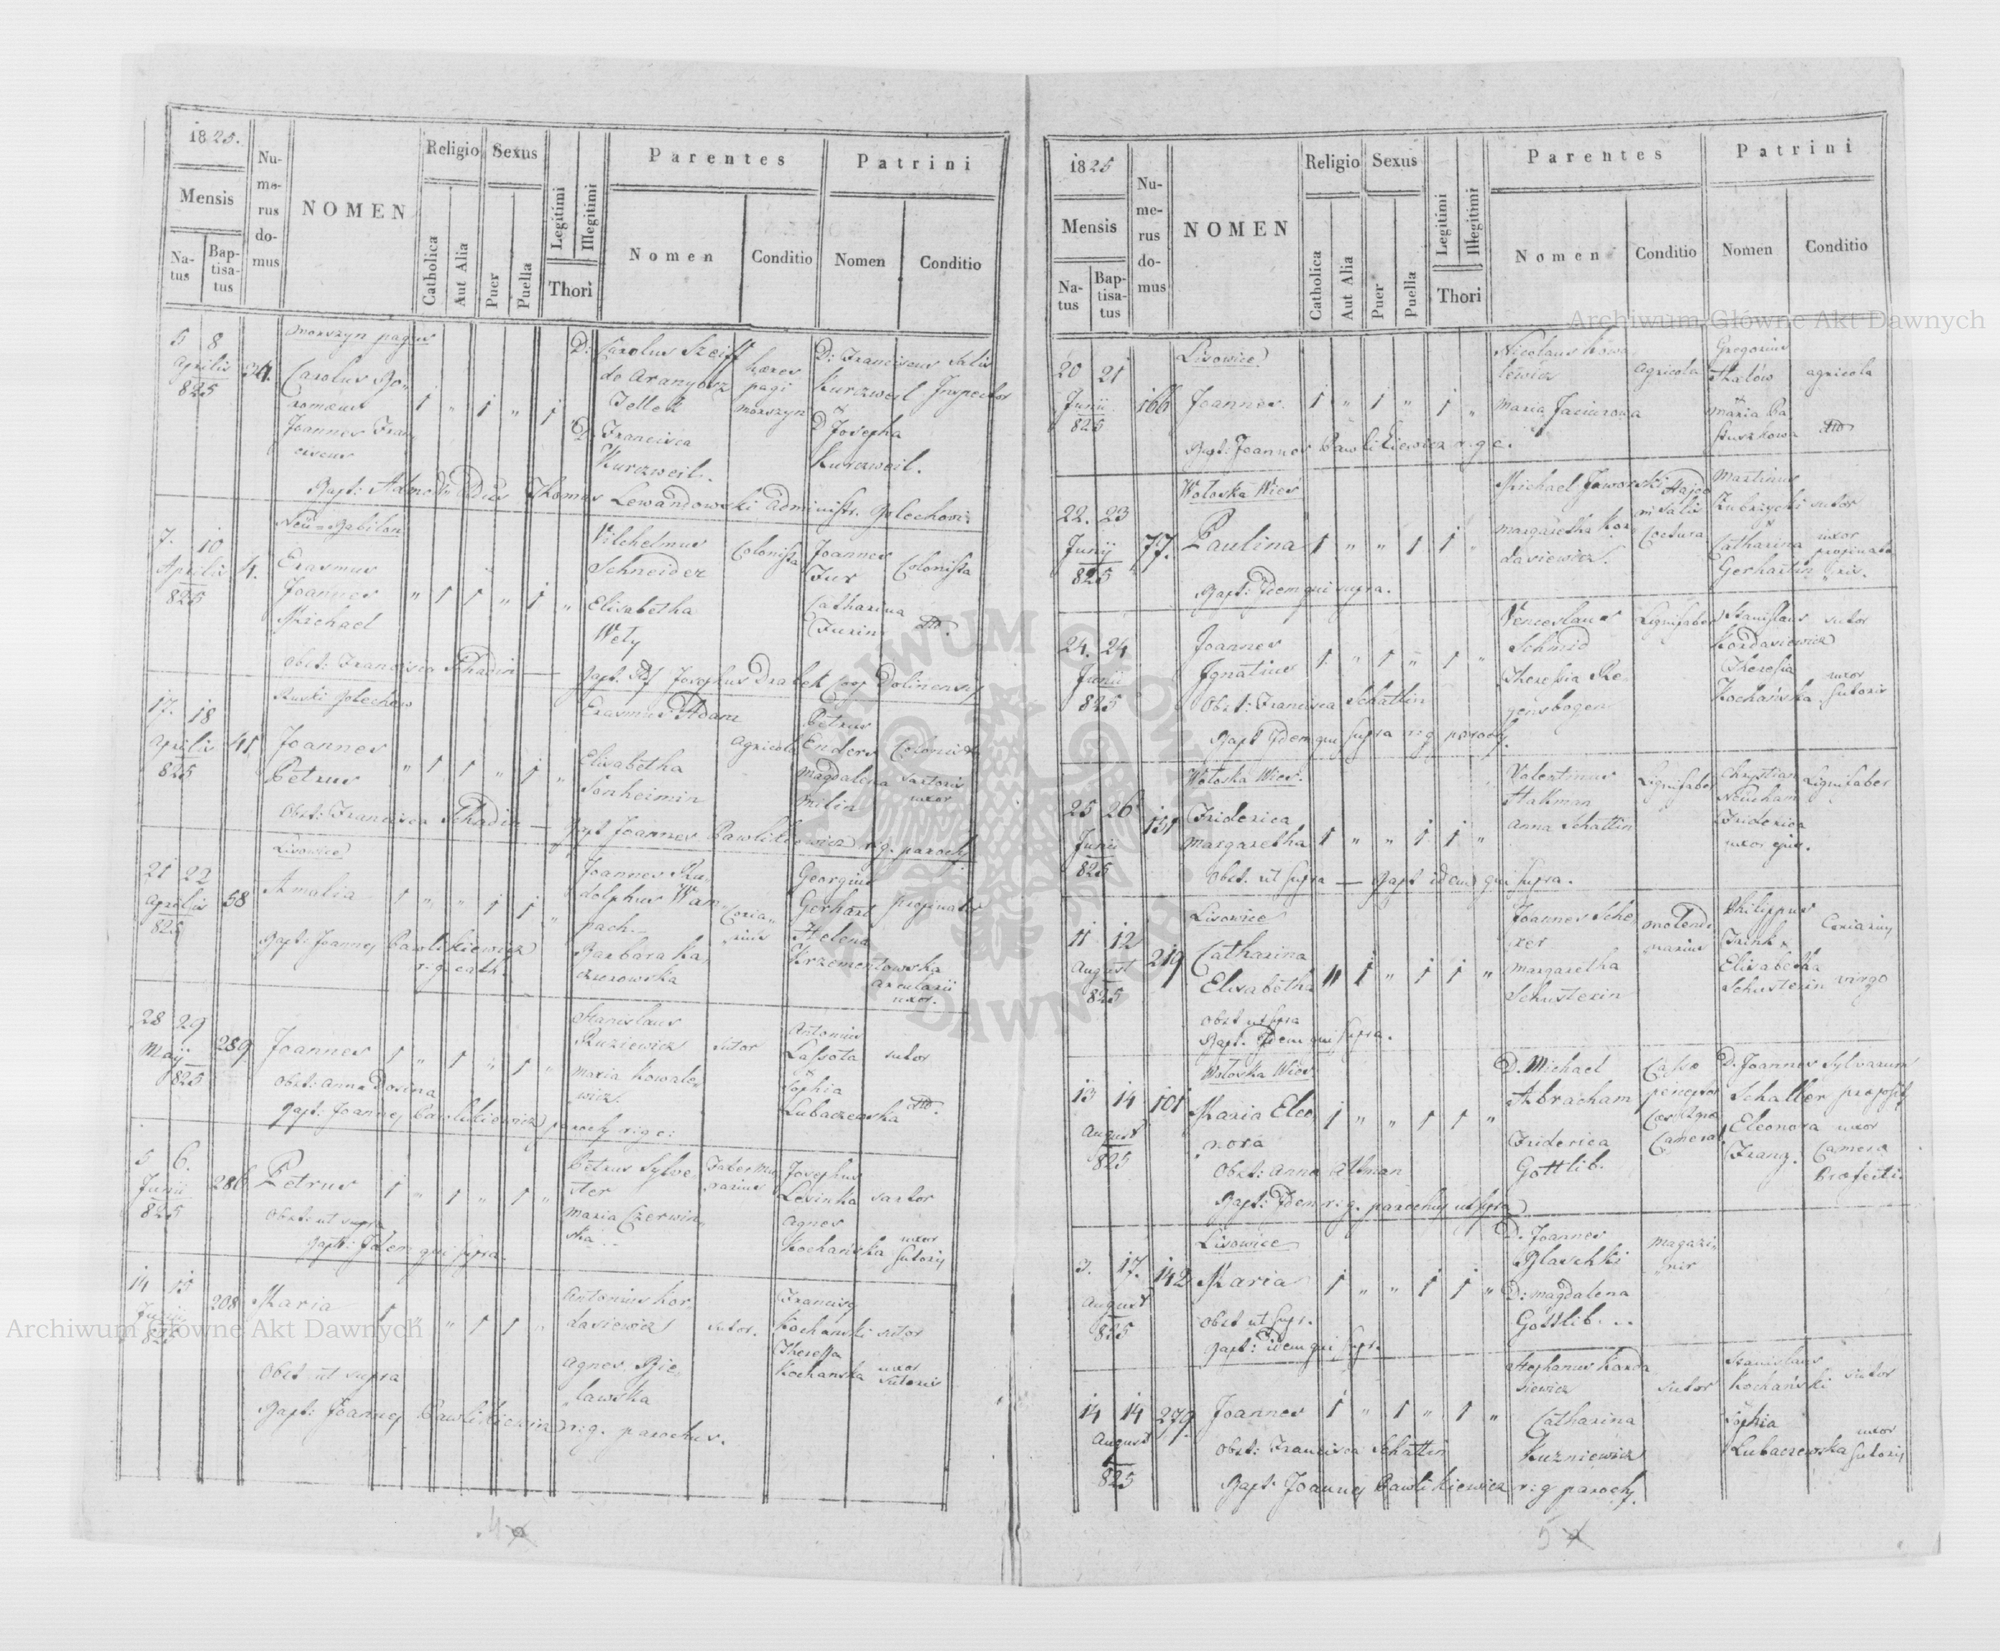 1825.
Mensis
Na-
tus
Bap-
tisa-
tus
Nu-
me-
rus
do-
mus
NOMEN
Religio
Catholica
Aut Alia
Sexus
Puer
Puella
Legitimi
Illegitimi
Thori
Parentes
Nomen
Conditio
Patrini
Nomen
Conditio
Morszyn pagus
5 8
Aprilis
825
Carolus Bo-
romaeus
Joannes Fran
ciscus
1 " 1 " 1
D: Carolus Szeiff
de Aranyosz
Jellek
D: Francisca
Kurzweil.
haeres
pagi
Morszyn
D: Franciscus Salis
Kurzweil Inspector
D Josepha
Kurzweil.
Bapt: Thomas Lewandowski Administr.
Neu-Babilon
7. 10
Aprilis
825
4.
Erasmus
Joannes
Michael
" 1 1 " 1 "
Vilhelmus
Schneider
Elisabetha
Wely
Colonista
Joannes
Fux
Catharina
Fuxin
Colonista
dto.
Obst: Francisca Schadin — Bapt. Josephus Drabek Coop Dolinensis
Ruski Bolechow
17. 18
Aprilis
825
41
Joannes
Petrus
" 1 1 " 1 "
Erasmus Adam
Elisabetha
Sonheimin
Agricola
Petrus
Enders
Magdalena
Milin
Colonista
Sartoris
uxor
Obst: Francisca Schadin — Bapt Joannes Pawlikiewicz r.g. paroch
Lisowice
21 22
Aprilis
825
58
Amalia
1 " " 1 1 "
Joannes Ru-
dolphus Wam
pach.
Barbara Ka-
czorowska
Coria-
rius
Georgius
Gerhart
Helena
Krzementowska
propinator
arcularii
uxor.
Bapt: Joannes Pawlikiewicz
r: g: cath.
28 29
Maji
825
289
Joannes
1 " 1 " 1
Stanislaus
Ruziewicz
Maria Kowale-
wicz.
sutor
Antonius
Lassota
&
Sophia
Lubaczewska
sutor
dto.
Obst: Anna Dorina
Bapt: Joannes Pawlikiewicz paroch r: g: c:
5 6.
Junii
825
286
Petrus
1 " 1 " 1 "
Petrus Sylve-
ster
Maria Czerwin-
ska..
Josephus
Lesinka
Agnes
Kochańska
sartor
uxor
Sutoris
Obst: ut supra
Bapt: Idem qui supra.
14 15
Junii
825
208
Maria
1 " " 1 1 "
Antonius Kor-
dasiewicz
Agnes Bie-
lawska
sutor.
Francisc
Kochanski
Theressa
Kochanska
sutor
uxor
sutoris
Obst: ut supra
Bapt: Joannes Pawlikiewicz r: g. parochus.
1825
Mensis
Na-
tus
Bap-
tisa-
tus
Nu-
me-
rus
do-
mus
NOMEN
Religio
Catholica
Aut Alia
Sexus
Puer
Puella
Legitimi
Illegitimi
Thori
Parentes
Nomen
Conditio
Patrini
Nomen
Conditio
Lisowice
20 21
Junii
825
166
Joannes
1 " 1 " 1 "
Nicolaus Kowa-
lewicz
Maria Jasiurowa
Agricola
Gregorius
&
Maria Pa-
stuszkowa
agricola
dto
Bapt: Joannes Pawlikiewicz r. g. c.
Wołoska Wieś
22. 23
Junij
825
77.
Paulina
1 " " 1 1 "
Michael Jaworski
Margaretha Kor-
dasiewicz.
Martinus
Zubrzycki
&
Catharina
Gerhartin
sutor
uxor
propinato-
ris.
Bapt: Idem qui supra.
24. 24
Junii
825
Joannes
Ignatius
1 " 1 " 1 "
Venceslaus
Schmid
Theresia Re-
gensbogen
Lignifaber
Stanislaus
Kordasiewicz
Theresia
Kochańska
sutor
uxor
Sutoris
Obst: Francisca Schattin
Bapt Idem qui supra r: g paroch.
Wołoska Wieś.
25 26
Junii
825
151
Friderica
Margaretha
1 " " 1 1 "
Valentinus
Halkman
Anna Schattin
Lignifaber
Chrystian
Neucham
Friderica
uxor ejus.
Lignifaber
Obst. ut supra — Bapt idem qui supra.
Lisowice
11 12
August
825
219
Catharina
Elisabetha
" 1 " 1 1 "
Joannes Sche
rer
Margaretha
Schusterin
molendi
narius
Philippus
Frink &
Elisabetha
Schusterin
Coriarius
virgo
Obst ut supra
Bapt. Idem qui supra.
Wołoska Wieś
13 14
August
825
101
Maria Eleo
nora
1 " " 1 1 "
D. Michael
Abracham
Friderica
Gottlib.
Cassae
perceptor
Cameral
D. Joannes
Schaller
Eleonora
Franz.
Sylvarum
praeposit
uxor
Camera
Praefecti.
Obst: Anna Altman
Bapt: Idem r: g. parochus ut supra
Lisowice
3. 17.
August
825
142
Maria
1 " " 1 1 "
D. Joannes
Blaschki
D: Magdalena
Gottlib. ..
Magazi-
nir
Obst ut supr.
Bapt: idem qui supr.
14 14
August
825
279.
Joannes
1 " 1 " 1 "
Stephanus Korda
siewicz
Catharina
Kuzniewicz
sutor
Stanislaus
Kochański
Sophia
Lubaczewska
sutor
uxor
Sutoris
Obst: Francisca Schattin
Bapt: Joannes Pawlikiewicz r: g paroch.
4
5
Archiwum Główne Akt Dawnych
Archiwum Główne Akt Dawnych